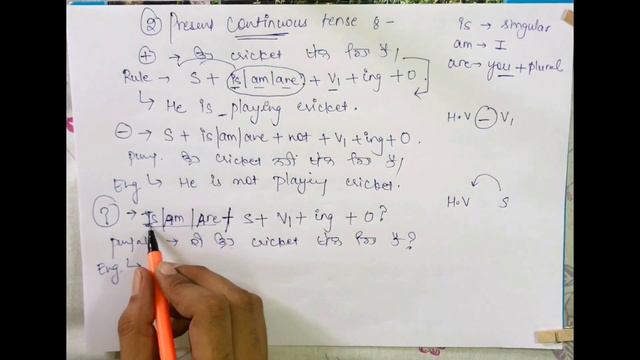 ② Present Continuous tense :-
is → singular
am → I
are → you + plural
⊕ → ਉਹ cricket ਖੇਲ ਰਿਹਾ ਹੈ।
Rule → S + is/am/are + V1 + ing + O.
↳ He is playing cricket.
H.V ⊖ V1
⊖ → S + is/am/are + not + V1 + ing + O.
Punj. ਉਹ cricket ਨਹੀਂ ਖੇਲ ਰਿਹਾ ਹੈ।
Eng ↳ He is not playing cricket.
H.V S
? → Is/Am/Are + S + V1 + ing + O?
Punjabi → ਕੀ ਉਹ cricket ਖੇਲ ਰਿਹਾ ਹੈ?
Eng. ↳